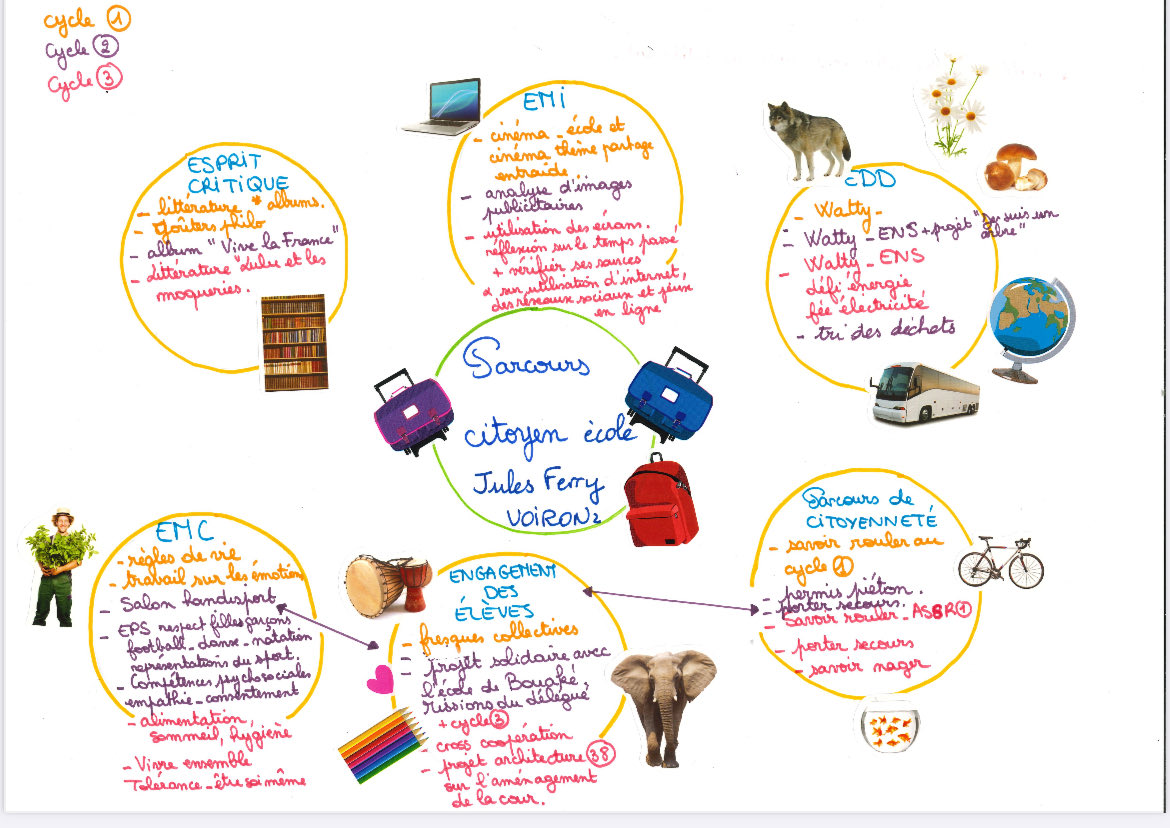 cycle 1
cycle 2
cycle 3
EMI
- cinéma - école et
cinéma thème partage
entraide.
- analyse d'images
publicitaires
- utilisation des écrans.
réflexion sur le temps passé
+ vérifier ses sources
sur utilisation d'internet,
des réseaux sociaux et jeux
en ligne
ESPRIT
CRITIQUE
- littérature * albums.
- goûters philo
- album "Vive la France"
- Littérature "Lulu et les
moqueries.
EDD
- Watty -
- Watty - ENS + projet "Je suis un
arbre"
- Watty - ENS
défi énergie
fée électricité
- tri des déchets
Parcours
citoyen école
Jules Ferry
VOIRON 2
EMC
- règles de vie
- travail sur les émotions
- Salon handisport
- EPS respect filles garçons
football - danse - natation
représentations du sport.
- Compétences psychosociales
empathie - consentement
- alimentation,
sommeil, hygiène
- Vivre ensemble
Tolérance - être soi même
ENGAGEMENT
DES
ÉLÈVES
- fresques collectives
- projet solidaire avec
l'école de Bouaké,
- missions du délégué
+ cycle 3
- cross coopération
- projet architecture 38
sur l'aménagement
de la cour.
Parcours de
CITOYENNETÉ
- savoir rouler au
cycle 1
- permis piéton.
- porter secours.
- Savoir rouler - ASSR 1
- porter secours
- savoir nager